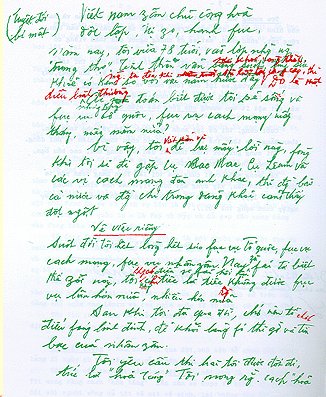 Tuyệt đối
bí mật
Việt nam zân chủ cộng hoà
độc lập, tự zo, hạnh fúc,
Năm nay, tôi vừa 78 tuổi, vào lớp những ng
"trung thọ". Tinh thần vẫn
điều bình thường
đoán biết được tôi còn sống và
fục vụ tổ quốc, fục vụ cách mạng mấy
tháng, mấy năm nữa?
Vì vậy, tôi để lại mấy lời này, fòng
khi tôi sẽ đi gặp cụ Mác, cụ Lênin và
các vị cách mạng đàn anh khác, thì đồng bào
cả nước và đồng chí trong Đảng khỏi cảm thấy
đột ngột
Về việc riêng
Suốt đời tôi hết lòng hết sức fục vụ Tổ quốc, fục vụ
cách mạng, fục vụ nhân zân. Nay zù fải từ biệt
thế giới này, tôi không có điều gì fải hối hận
chỉ tiếc là tiếc không được fục
vụ lâu hơn nữa, nhiều hơn nữa
Sau khi tôi đã qua đời, chớ nên tổ chức
điếu fúng linh đình, để khỏi lãng fí thì giờ và tiền
bạc của nhân zân.
Tôi yêu cầu thi hài tôi được đốt đi,
tức là "hoả táng". Tôi mong rằng cách hoả